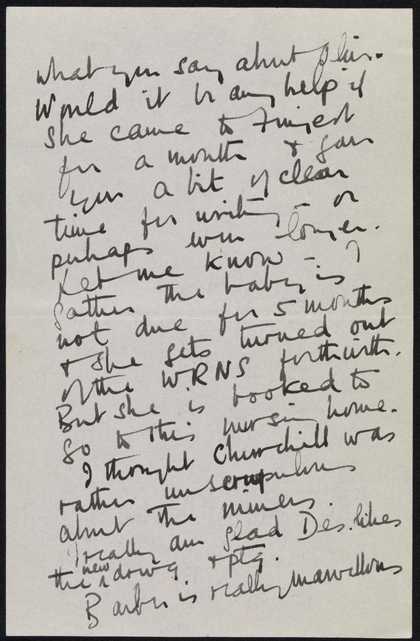 what you say about Oliv.
Would it be any help if
she came to Fingest
for a month & gave
you a bit of clear
time for writing – or
perhaps even longer.
Let me know – I
gather the baby is
not due for 5 months
& she gets turned out
of the WRNS forthwith.
But she is booked to
go to this nursing home.
I thought Churchill was
rather unscrupulous
about the miners.
I really am glad Des. likes
the new drawg & ptg.
is really marvellous